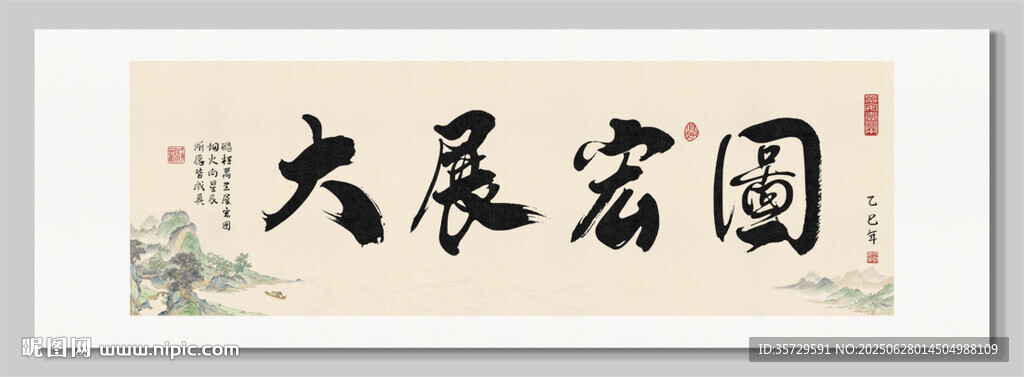 大展宏圖
乙巳年
鹏程萬里展宏图
烟火向星辰
所愿皆成真
昵图网 www.nipic.com
ID:35729591 NO:20250628014504988109